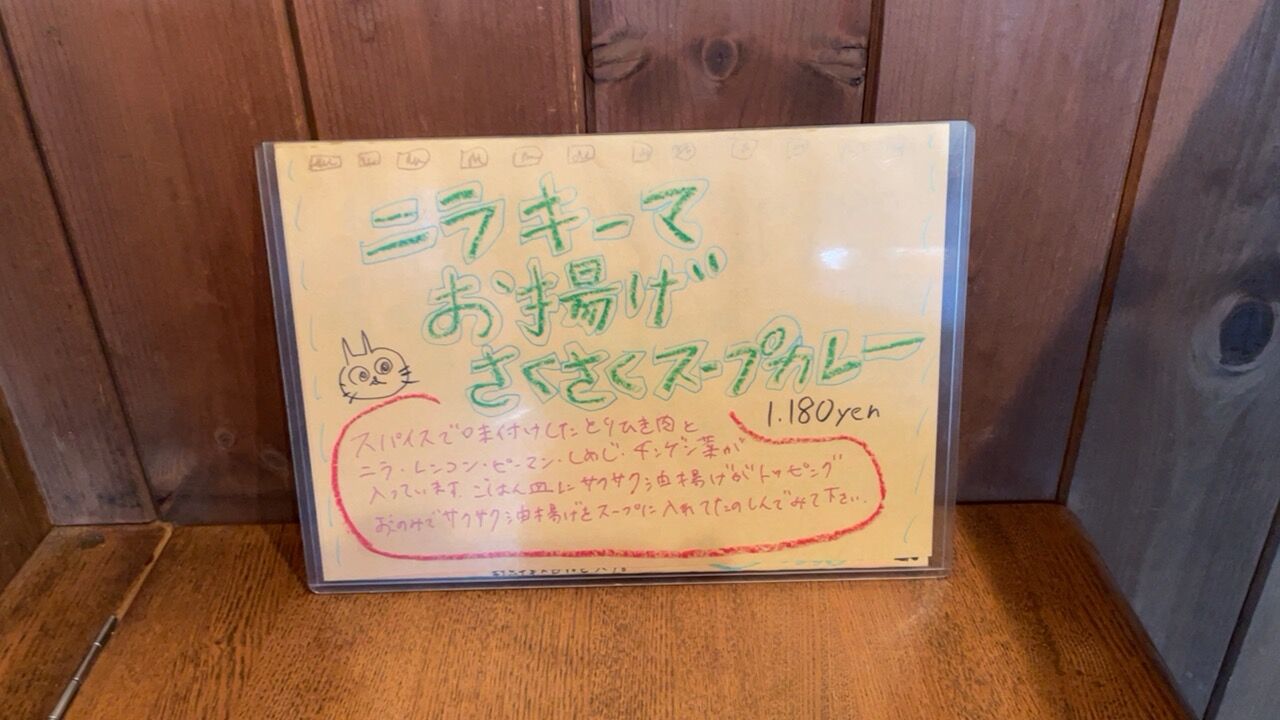 ニラキーマ
お揚げ
さくさくスープカレー
1.180yen
スパイスで味付けしたとりひき肉と
ニラ・レンコン・ピーマン・しめじ・チンゲン菜が
入っています。ごはん皿にサクサク油揚げがトッピング
おこのみでサクサク油揚げをスープに入れてたのしんでみて下さい.